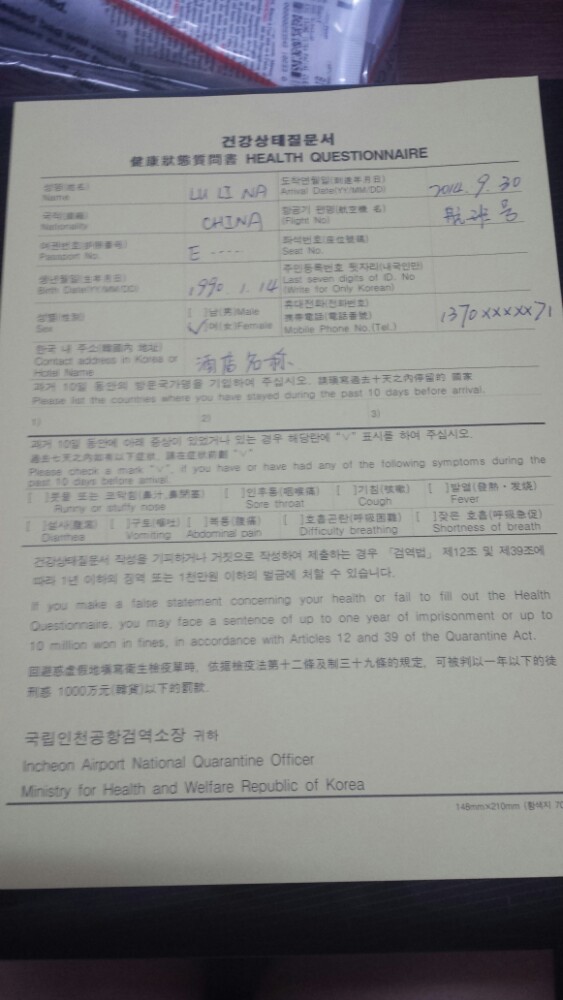 건강상태질문서
健康狀態質問書 HEALTH QUESTIONNAIRE
성명(姓名) Name LU LI NA 도착연월일(到達年月日) Arrival Date(YY/MM/DD) 2014. 9. 30
국적(國籍) Nationality CHINA 항공기 편명(航空機 名) (Flight No) 航班号
여권번호(护照番号) Passport No. E ···· 좌석번호(座位號碼) Seat No.
생년월일(生年月日) Birth Date(YY/MM/DD) 1990. 1. 14 주민등록번호 뒷자리(내국인만) Last seven digits of ID. No (Write for Only Korean)
성별(性別) Sex [ ]남(男)Male [✓]여(女)Female 휴대전화(전화번호) 携帶電話(電話番號) Mobile Phone No.(Tel.) 1370xxxxx71
한국 내 주소(韓國內 地址) Contact address in Korea or Hotel Name 酒店名称
과거 10일 동안의 방문국가명을 기입하여 주십시오. 請填寫過去十天之內停留的 國家
Please list the countries where you have stayed during the past 10 days before arrival.
1) 2) 3)
과거 10일 동안에 아래 증상이 있었거나 있는 경우 해당란에 "∨" 표시를 하여 주십시오.
過去七天之內如有以下症狀, 請在症狀前劃 "∨"
Please check a mark "∨", if you have or have had any of the following symptoms during the
past 10 days before arrival.
[ ]콧물 또는 코막힘(鼻汁,鼻閉塞) [ ]인후통(咽喉痛) [ ]기침(咳嗽) [ ]발열(發熱·发烧)
Runny or stuffy nose Sore throat Cough Fever
[ ]설사(腹瀉) [ ]구토(嘔吐) [ ]복통(腹痛) [ ]호흡곤란(呼吸困難) [ ]잦은 호흡(呼吸急促)
Diarrhea Vomiting Abdominal pain Difficulty breathing Shortness of breath
건강상태질문서 작성을 기피하거나 거짓으로 작성하여 제출하는 경우 「검역법」 제12조 및 제39조에
따라 1년 이하의 징역 또는 1천만원 이하의 벌금에 처할 수 있습니다.
If you make a false statement concerning your health or fail to fill out the Health
Questionnaire, you may face a sentence of up to one year of imprisonment or up to
10 million won in fines, in accordance with Articles 12 and 39 of the Quarantine Act.
回避惑虛假地填寫衛生檢疫單時, 依據檢疫法第十二條及制三十九條的規定, 可被判以一年以下的徒
刑惑 1000万元(韓貨)以下的罰款.
국립인천공항검역소장 귀하
Incheon Airport National Quarantine Officer
Ministry for Health and Welfare Republic of Korea
148mm×210mm (황색지 70